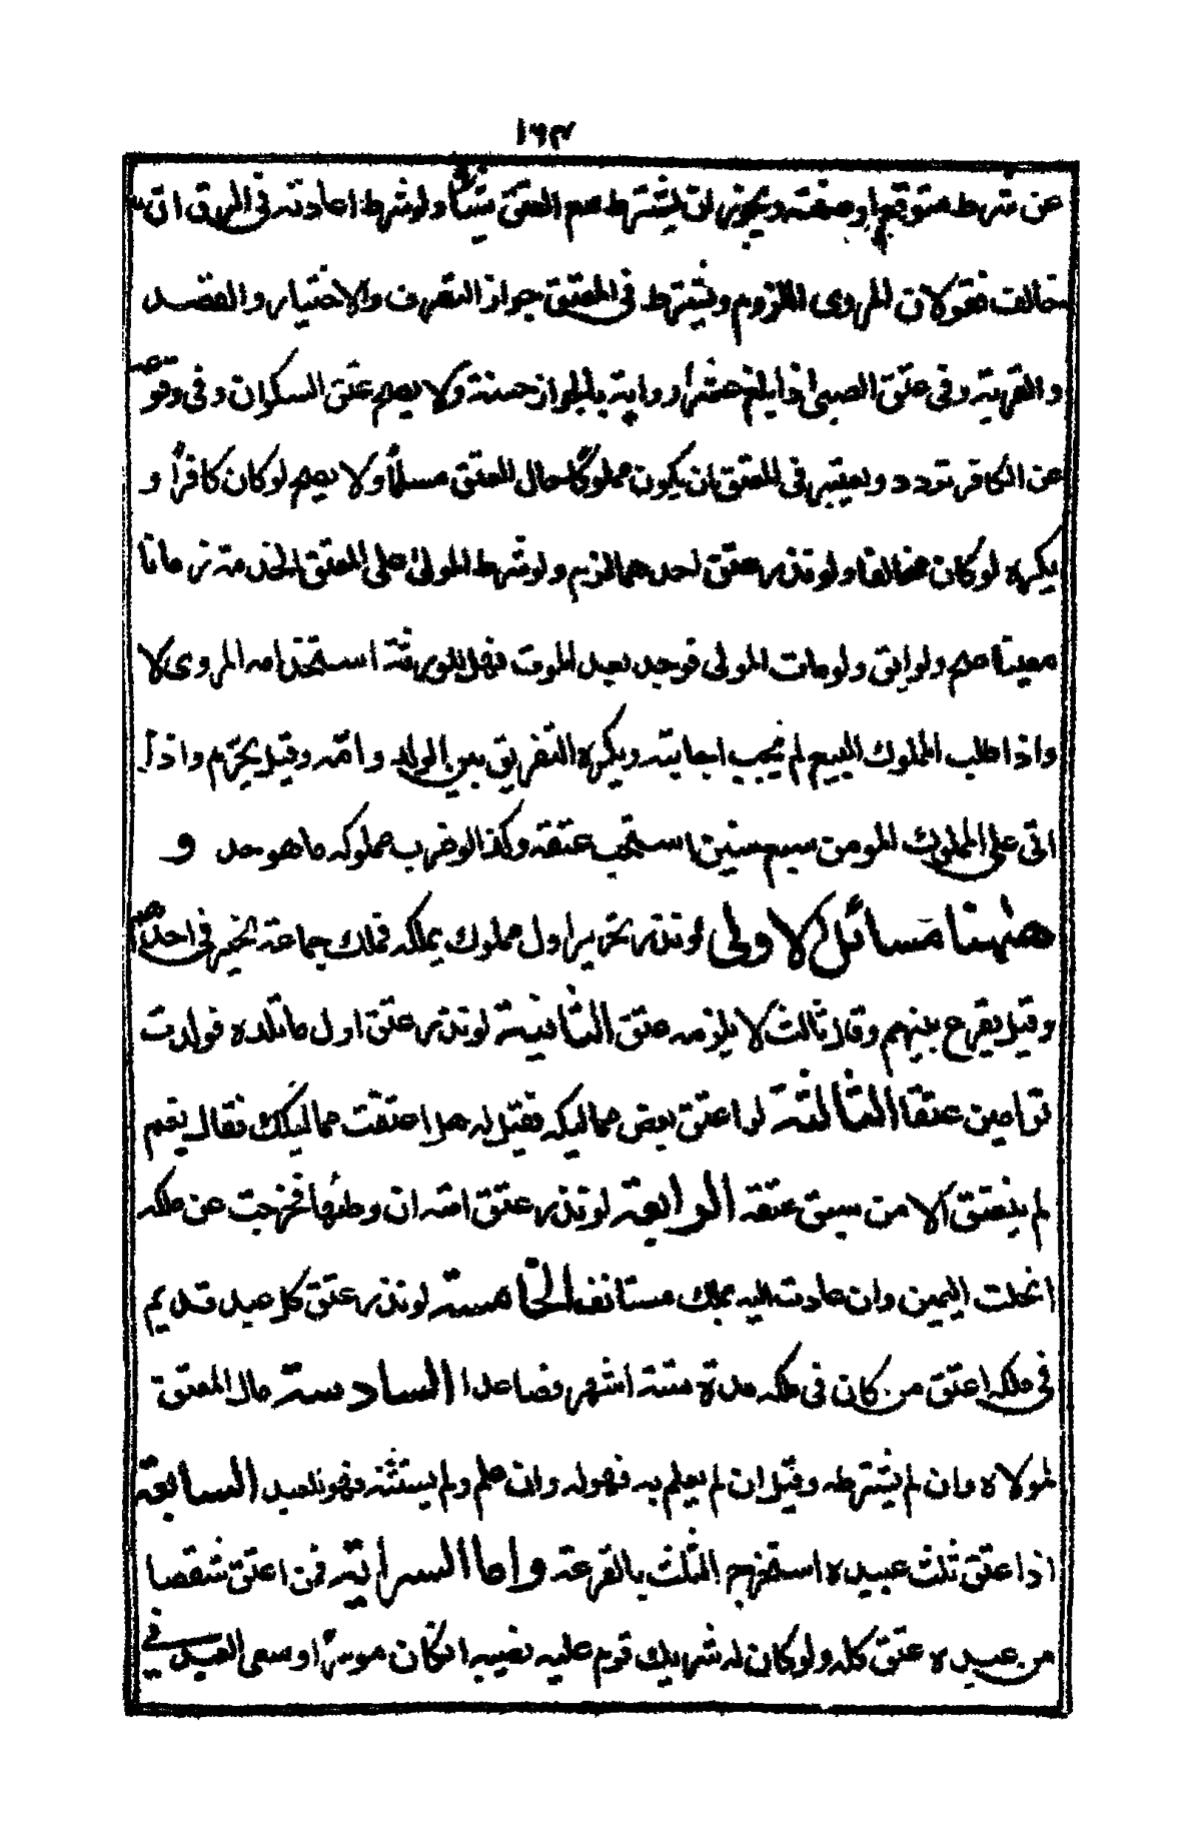 ١٦٣
عن شرط متوقع او صفته ويجوز ان يشترط مع العتق شيئا ولو شرط اعادته في الرق ان
خالف فقولان المروى اللزوم ويشترط في المعتق جواز التصرف والاختيار والقصد
والقربة وفي عتق الصبى اذا بلغ عشراً رواية بالجواز حسنة ولا يصح عتق السكران وفي وقوعه
من الكافر تردد ويعتبر في المعتق ان يكون مملوكا حال العتق مسلماً ولا يصح لو كان كافراً و
يكره لو كان مخالفا ولو نذر عتق احدهما لزم ولو شرط المولى على المعتق الخدمة زمانا
معينا صح ولو ابق ولو مات المولى فوجد بعد الموت فهل للورثة استخدامه المروى لا
واذا طلب المملوك البيع لم يجب اجابته ويكره التفريق بين الولد وامّه وقيل يحرّم واذا
اتى على المملوك المومن سبع سنين استحب عتقه وكذا لو ضرب مملوكه ما هو حد و
ههنا مسائل الاولى لو نذر تحرير اول مملوك يملكه فملك جماعة تخير في احدهم
وقيل يقرع بينهم وقال ثالث لا يلزمه عتق الثانية لو نذر عتق اول ما تلده فولدت
توامين عتقا الثالثة لو اعتق بعض مماليكه فقيل له هل اعتقت مماليكك فقال نعم
لم ينعتق الا من سبق عتقه الرابعة لو نذر عتق امته ان وطئها فخرجت عن ملكه
انحلت اليمين وان عادت اليه بملك مستانف الخامسة لو نذر عتق كل عبد قديم
في ملكه اعتق من كان في ملكه مدة ستة اشهر فصاعدا السادسة مال المعتق
لمولاه وان لم يشترطه وقيل ان لم يعلم به فهو له وان علم ولم يستثنه فهو للعبد السابعة
اذا اعتق ثلث عبيده استخرج الثلث بالقرعة واما السراية فمن اعتق شقصا
من عبده عتق كله ولو كان له شريك قوم عليه نصيبه ان كان موسراً او سعى العبد في